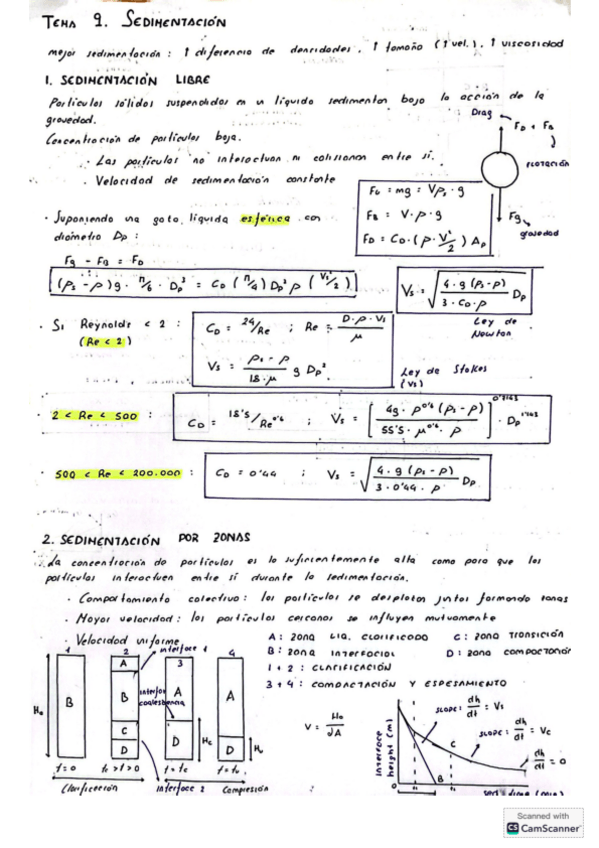 TEMA 9. SEDIMENTACIÓN
mejor sedimentación: ↑ diferencia de densidades, ↑ tamaño (↑ vel.), ↑ viscosidad
1. SEDIMENTACIÓN LIBRE
Partículas sólidas suspendidas en un líquido sedimentan bajo la acción de la
gravedad.
Concentración de partículas baja.
· Las partículas no interactuan ni colisionan entre sí.
· Velocidad de sedimentación constante
Drag
FD + FB
FLOTACIÓN
Fg
gravedad
FG = mg = Vρs · g
FB = V · ρ · g
FD = CD · (ρ · V²/2) Ap
· Suponiendo una gota líquida esférica con
diámetro Dp:
Fg - FB = FD
(ρs - ρ)g · π/6 · Dp³ = CD (π/4) Dp² ρ (Vs²/2)
Vs = √(4 · g (ρs - ρ) / 3 · CD · ρ Dp)
Ley de
Newton
· Si Reynolds < 2:
(Re < 2)
CD = 24/Re ; Re = D · ρ · Vs / μ
Vs = ρs - ρ / 18 · μ g Dp²
Ley de Stokes
(Vs)
· 2 < Re < 500 :
CD = 18'5/Re^0'6 ; Vs = [4g · ρ^0'6 (ρs - ρ) / 55'5 · μ^0'6 · ρ]^0'7143 · Dp^1'143
· 500 < Re < 200.000 :
CD = 0'44 ; Vs = √(4 · g (ρs - ρ) / 3 · 0'44 · ρ Dp)
2. SEDIMENTACIÓN POR ZONAS
La concentración de partículas es lo suficientemente alta como para que las
partículas interactuen entre sí durante la sedimentación.
· Comportamiento colectivo: las partículas se desplazan juntas formando zonas
· Mayor velocidad: las partículas cercanas se influyen mutuamente
· Velocidad uniforme
A: ZONA LIQ. CLARIFICADO C: ZONA TRANSICIÓN
B: ZONA INTERFACIAL D: ZONA COMPACTACIÓN
1 + 2 : CLARIFICACIÓN
3 + 4 : COMPACTACIÓN Y ESPESAMIENTO
1 2 interface 1 3 4
H₀ B A B C D
interfaz
coalescencia
A D Hc A D
t = 0 tc > t > 0 t = tc
Clarificación Interface 2 Compresión
V = H₀/
interface
height (m)
SLOPE: dh/dt = Vs
SLOPE: dh/dt = Vc
dh/dt = 0
C
B
0
Scanned with
CS CamScanner